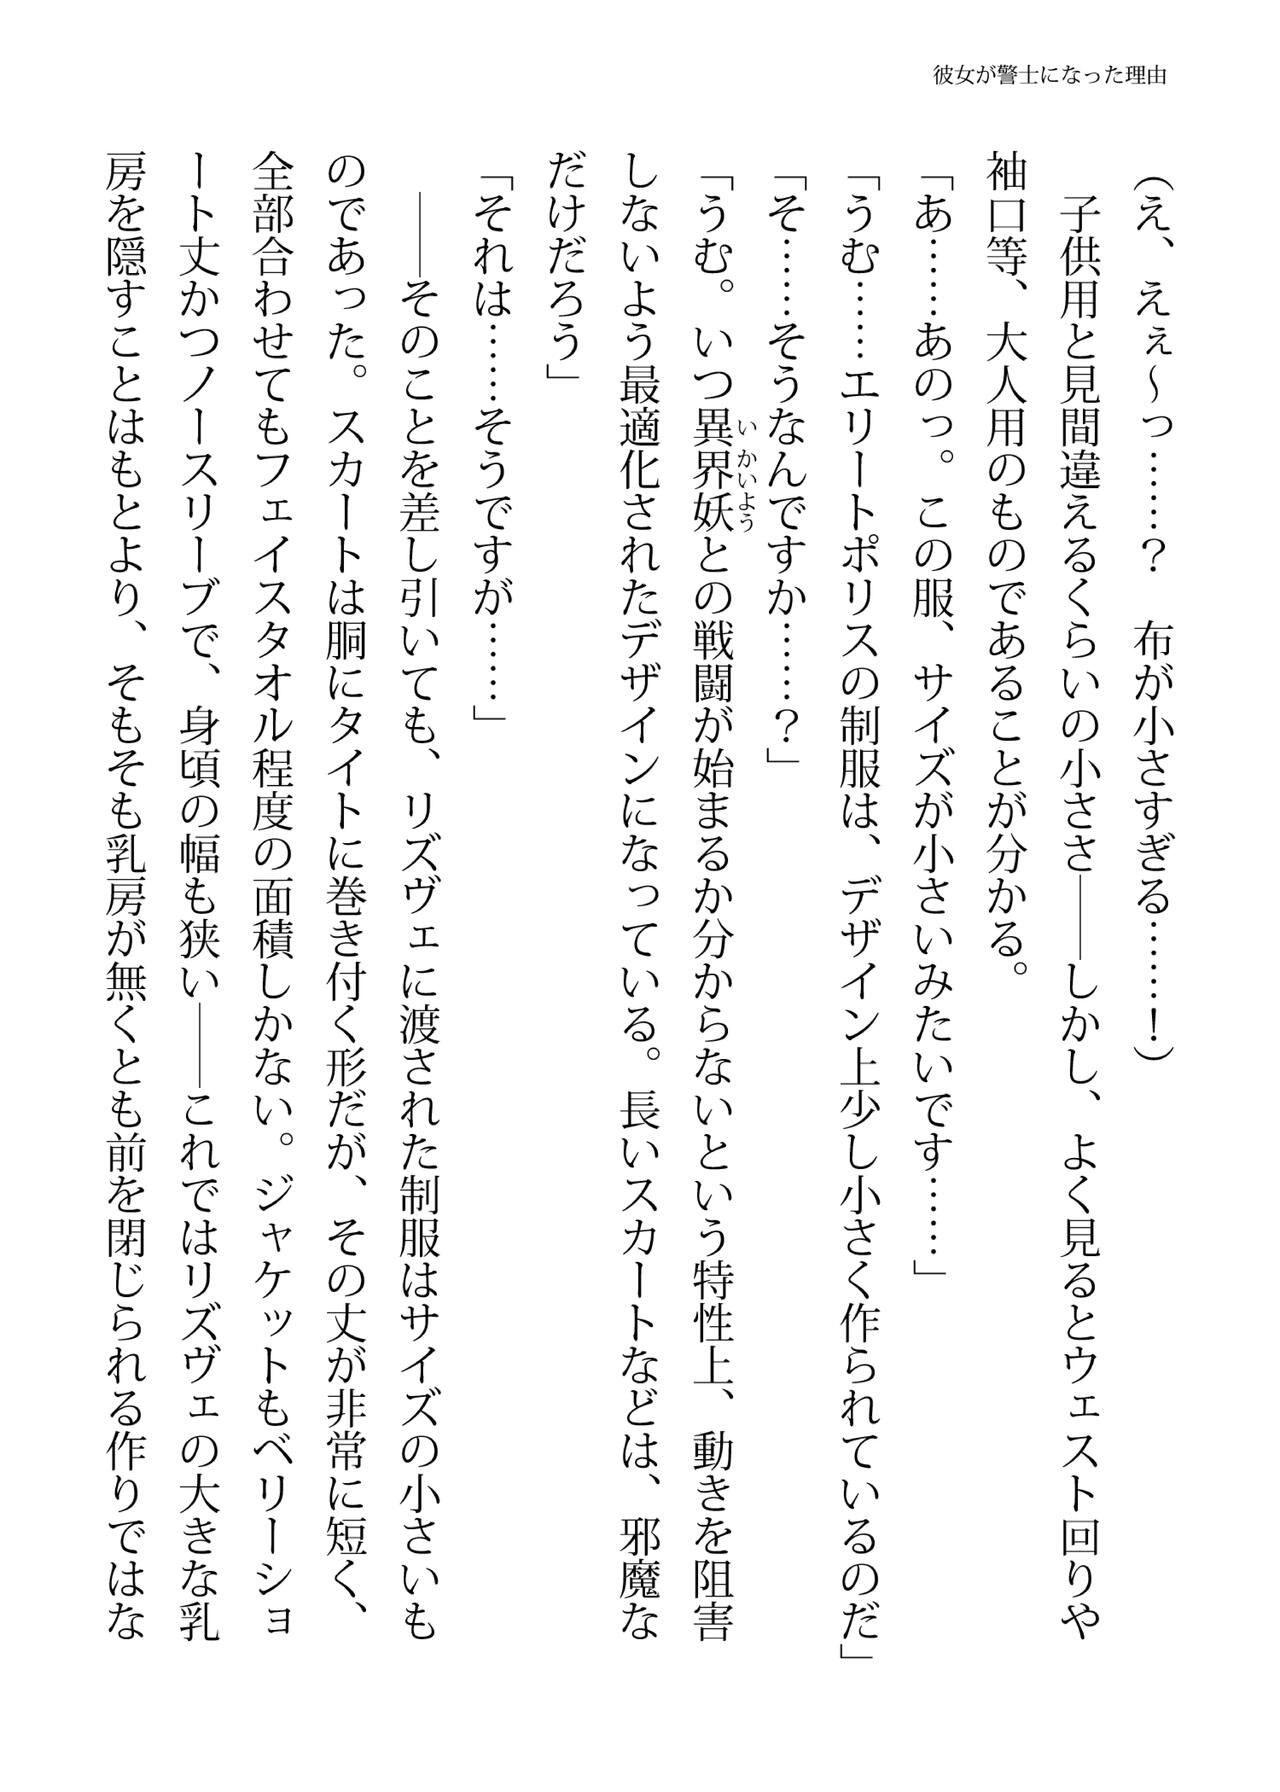 彼女が警士になった理由
(え、えぇ〜っ……? 布が小さすぎる……!)
　子供用と見間違えるくらいの小ささ――しかし、よく見るとウェスト回りや
袖口等、大人用のものであることが分かる。
「あ……あのっ。この服、サイズが小さいみたいです……」
「うむ……エリートポリスの制服は、デザイン上少し小さく作られているのだ」
「そ……そうなんですか……?」
「うむ。いつ異界妖との戦闘が始まるか分からないという特性上、動きを阻害
いかいよう
しないよう最適化されたデザインになっている。長いスカートなどは、邪魔な
だけだろう」
「それは……そうですが……」
　――そのことを差し引いても、リズヴェに渡された制服はサイズの小さいも
のであった。スカートは胴にタイトに巻き付く形だが、その丈が非常に短く、
全部合わせてもフェイスタオル程度の面積しかない。ジャケットもベリーショ
ート丈かつノースリーブで、身頃の幅も狭い――これではリズヴェの大きな乳
房を隠すことはもとより、そもそも乳房が無くとも前を閉じられる作りではな